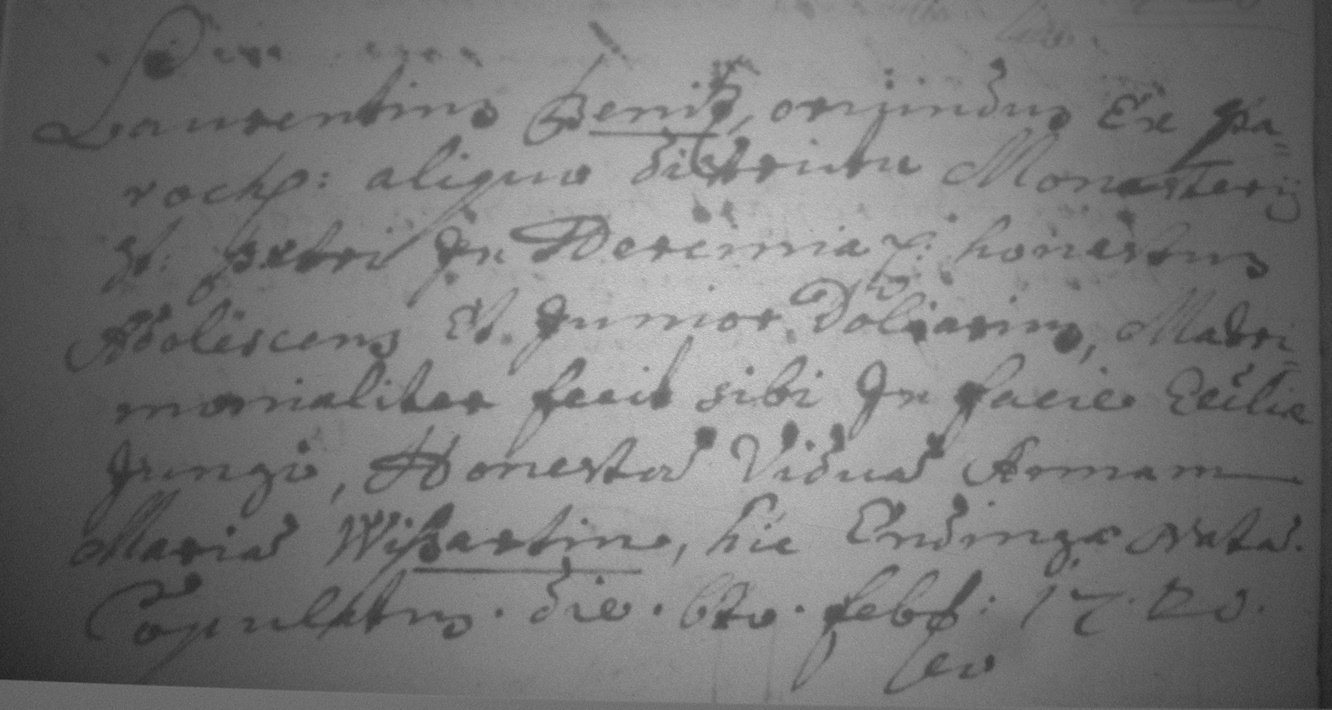 Laurentius Beniz, oriundus Ex Pa=
roch: aliqua districtu Monasterij
St: Petri In Heremia p: honestus
Adolescens Et Junior Doliarius, Matri=
monialiter fecit sibi In facie Eccliæ
Jungi, Honestâ Viduâ Annam
Mariâ Wißartin, hic Endingæ Nata.
Copulatus. die. 6to. feb: 1720.